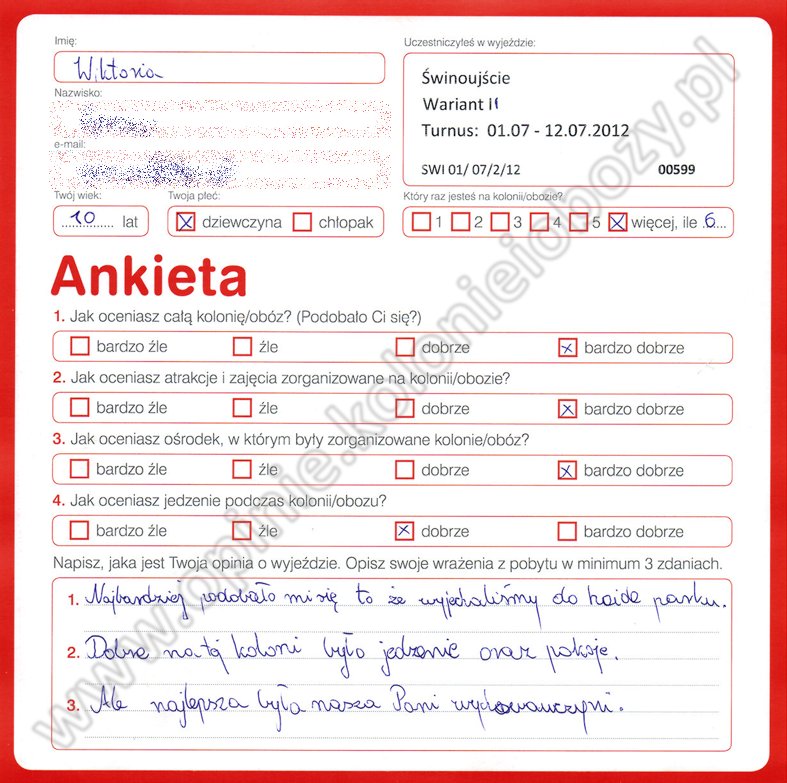 Imię:
Wiktoria
Nazwisko:
e-mail:
Twój wiek:
10 lat
Twoja płeć:
dziewczyna chłopak
Uczestniczyłeś w wyjeździe:
Świnoujście
Wariant II
Turnus: 01.07 - 12.07.2012
SWI 01/ 07/2/12 00599
Który raz jesteś na kolonii/obozie?
1 2 3 4 5 więcej, ile 6
Ankieta
1. Jak oceniasz całą kolonię/obóz? (Podobało Ci się?)
bardzo źle źle dobrze bardzo dobrze
2. Jak oceniasz atrakcje i zajęcia zorganizowane na kolonii/obozie?
bardzo źle źle dobrze bardzo dobrze
3. Jak oceniasz ośrodek, w którym były zorganizowane kolonie/obóz?
bardzo źle źle dobrze bardzo dobrze
4. Jak oceniasz jedzenie podczas kolonii/obozu?
bardzo źle źle dobrze bardzo dobrze
Napisz, jaka jest Twoja opinia o wyjeździe. Opisz swoje wrażenia z pobytu w minimum 3 zdaniach.
1. Najbardziej podobało mi się to że wyjechaliśmy do haide parku.
2. Dobre na tej koloni było jedzenie oraz pokoje.
3. Ale najlepsza była nasza Pani wychowawczyni.
www.opinie.kolonieiobozy.pl